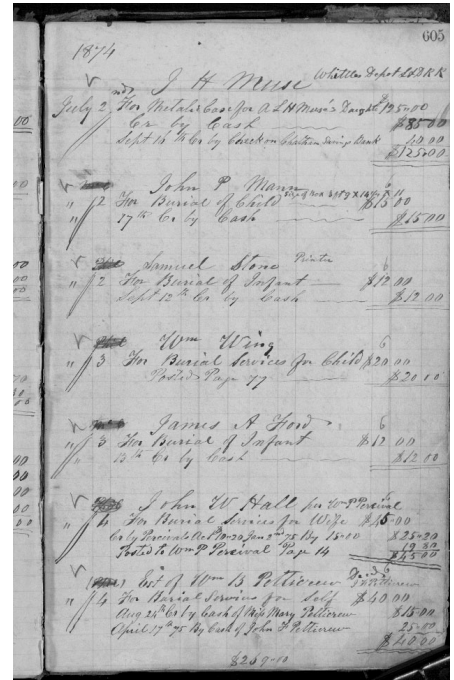 605
1874
Whittles Depot
J H Muse
July 2 For Metalic Case for A L H Muse's Daught 125.00
Cr by Cash $85.00
Sept 14th Cr by Check on Savings Bank 40.00
$125.00
John P Mann
" 2 For Burial of Child $15.00
17th Cr by Cash $15.00
Samuel Stone Printer
" 2 For Burial of Infant $12.00
Sept 12th Cr by Cash $12.00
Wm Wing 6
" 3 For Burial Services for Child $20.00
Posted Page 77 $20.00
James A Ford 6
" 3 For Burial of Infant $12.00
13th Cr by Cash $12.00
John W Hall per Wm P Percival
" 4 For Burial Services for Wife $45.00
Cr by Percival 75 By 15.00 $25.20
Posted to Wm P Percival Page 14 19.80
$45.00
Est of Wm B Petticrew
" 4 For Burial Services for Self $40.00
Aug 24th Cr by Cash of Miss Mary Petticrew $15.00
April 17th 75 By Cash of John F Petticrew 25.00
$40.00
$259.10